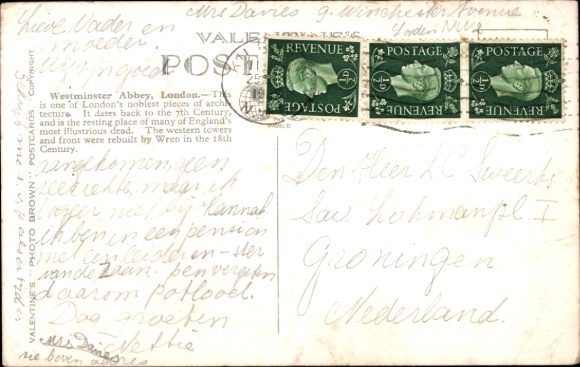 Mrs Davies 9. Winchester Avenue
London NW
Lieve Vader en
moeder.
VALENTINE'S
POST
Westminster Abbey, London.—This
is one of London's noblest pieces of archi-
tecture. It dates back to the 7th Century,
and is the resting place of many of England's
most illustrious dead. The western towers
and front were rebuilt by Wren in the 18th
Century.
aangekomen, geen
zeeziekte, maar ik
niet bij Hannah
ik ben in een pension
met een leider en -ster
van de Zaan. pen vergeten
daarom potlood.
Dag groeten
Nettie
Mrs Davies
zie boven adres
VALENTINE'S "PHOTO BROWN" POSTCARDS COPYRIGHT
REVENUE
½D
POSTAGE
POSTAGE
½D
REVENUE
POSTAGE
½D
REVENUE
WORLD
Den Heer L C Sweerts
Sav. Lohmanpl. I
Groningen
Nederland.